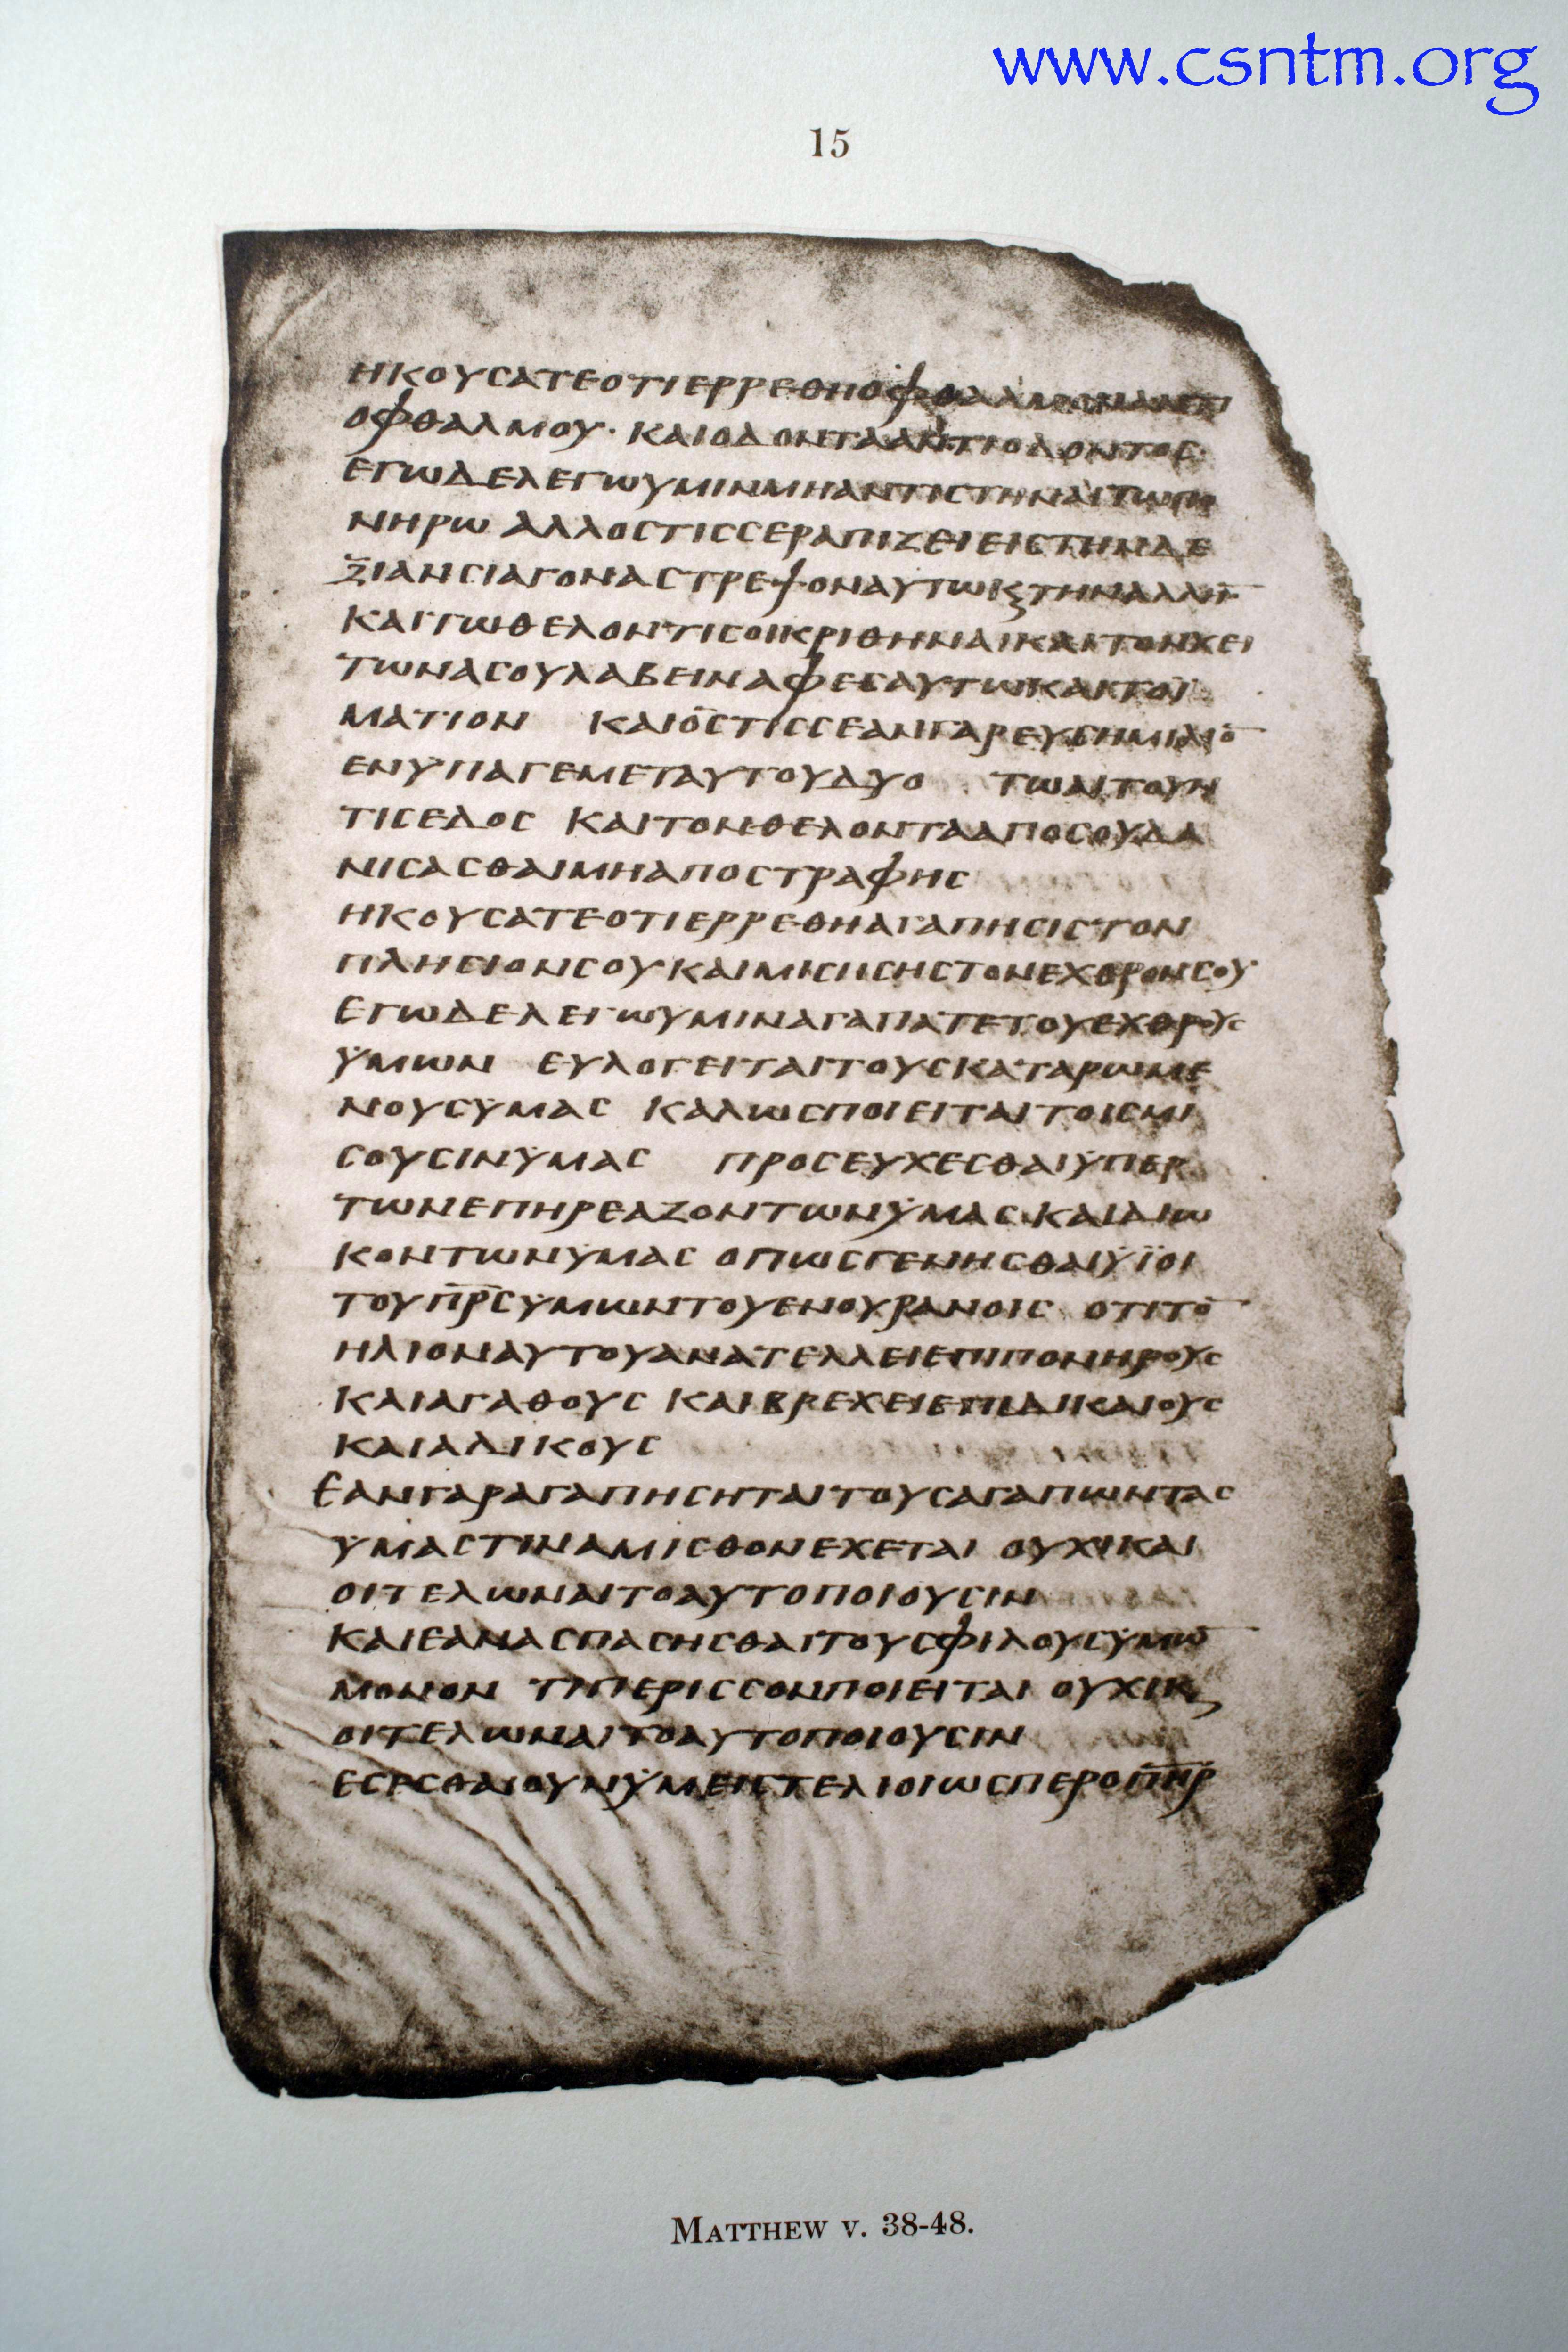 www.csntm.org
15
ΗΚΟΥСΑΤΕΟΤΙΕΡΡΕΘΗΟΦΘΑΛΜΟΝΑΝΤΙ
ΟΦΘΑΛΜΟΥ· ΚΑΙΟΔΟΝΤΑΑΝΤΙΟΔΟΝΤΟС
ΕΓΩΔΕΛΕΓΩΥΜΙΝΜΗΑΝΤΙСΤΗΝΑΙΤΩΠΟ
ΝΗΡΩ ΑΛΛΟСΤΙССΕΡΑΠΙΖΕΙΕΙСΤΗΝΔΕ
ΞΙΑΝСΙΑΓΟΝΑСΤΡΕΨΟΝΑΥΤΩΚϚΤΗΝΑΛΛΗ̅
ΚΑΙΤΩΘΕΛΟΝΤΙСΟΙΚΡΙΘΗΝΑΙΚΑΙΤΟΝΧΕΙ
ΤΩΝΑСΟΥΛΑΒΕΙΝΑΦΕСΑΥΤΩΚΑΙΤΟΪ
ΜΑΤΙΟΝ ΚΑΙΟСΤΙССΕΑΝΓΑΡΕΥСΗΜΙΛΙΟ̅
ΕΝΥΠΑΓΕΜΕΤΑΥΤΟΥΔΥΟ ΤΩΑΙΤΟΥΝ
ΤΙСΕΔΟС ΚΑΙΤΟΝΘΕΛΟΝΤΑΑΠΟСΟΥΔΑ
ΝΙСΑСΘΑΙΜΗΑΠΟСΤΡΑΦΗС
ΗΚΟΥСΑΤΕΟΤΙΕΡΡΕΘΗΑΓΑΠΗСΙСΤΟΝ
ΠΛΗСΙΟΝСΟΥΚΑΙΜΙСΗСΗСΤΟΝΕΧΘΡΟΝСΟΥ
ΕΓΩΔΕΛΕΓΩΥΜΙΝΑΓΑΠΑΤΕΤΟΥΕΧΘΡΟΥС
ΫΜΩΝ ΕΥΛΟΓΕΙΤΑΙΤΟΥСΚΑΤΑΡΩΜΕ
ΝΟΥСΫΜΑС ΚΑΛΩСΠΟΙΕΙΤΑΙΤΟΙСΜΙ
СΟΥСΙΝΫΜΑС ΠΡΟСΕΥΧΕСΘΑΙΫΠΕΡ
ΤΩΝΕΠΗΡΕΑΖΟΝΤΩΝΫΜΑСΚΑΙΔΙΩ
ΚΟΝΤΩΝΫΜΑС ΟΠΩСΓΕΝΗСΘΑΙΫΪΟΙ
ΤΟΥΠ̅Ρ̅С̅ΥΜΩΝΤΟΥΕΝΟΥΡΑΝΟΙС ΟΤΙΤΟ̅
ΗΛΙΟΝΑΥΤΟΥΑΝΑΤΕΛΛΕΙΕΠΙΠΟΝΗΡΟΥС
ΚΑΙΑΓΑΘΟΥС ΚΑΙΒΡΕΧΕΙΕΠΙΔΙΚΑΙΟΥС
ΚΑΙΑΔΙΚΟΥС
ΕΑΝΓΑΡΑΓΑΠΗСΗΤΑΙΤΟΥСΑΓΑΠΩΝΤΑС
ΫΜΑСΤΙΝΑΜΙСΘΟΝΕΧΕΤΑΙ ΟΥΧΙΚΑΙ
ΟΙΤΕΛΩΝΑΙΤΟΑΥΤΟΠΟΙΟΥСΙΝ
ΚΑΙΕΑΝΑСΠΑСΗСΘΑΙΤΟΥСΦΙΛΟΥСΫΜΩ̅
ΜΟΝΟΝ ΤΙΠΕΡΙССΟΝΠΟΙΕΙΤΑΙ ΟΥΧΙΚϚ
ΟΙΤΕΛΩΝΑΙΤΟΑΥΤΟΠΟΙΟΥСΙΝ
ΕСΕСΘΑΙΟΥΝΫΜΕΙСΤΕΛΙΟΙΩСΠΕΡΟΠ̅Η̅Ρ̅
MATTHEW V. 38-48.